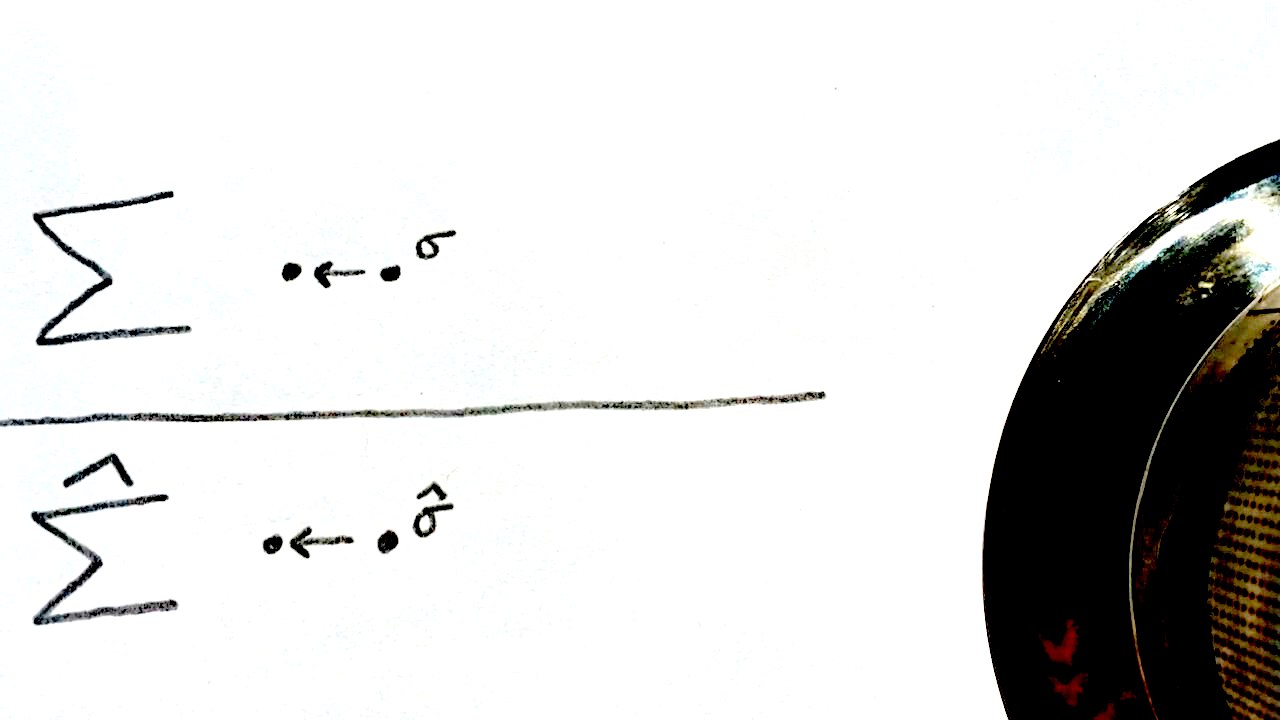 Σ •←•σ
Σ̂ •←•σ̂